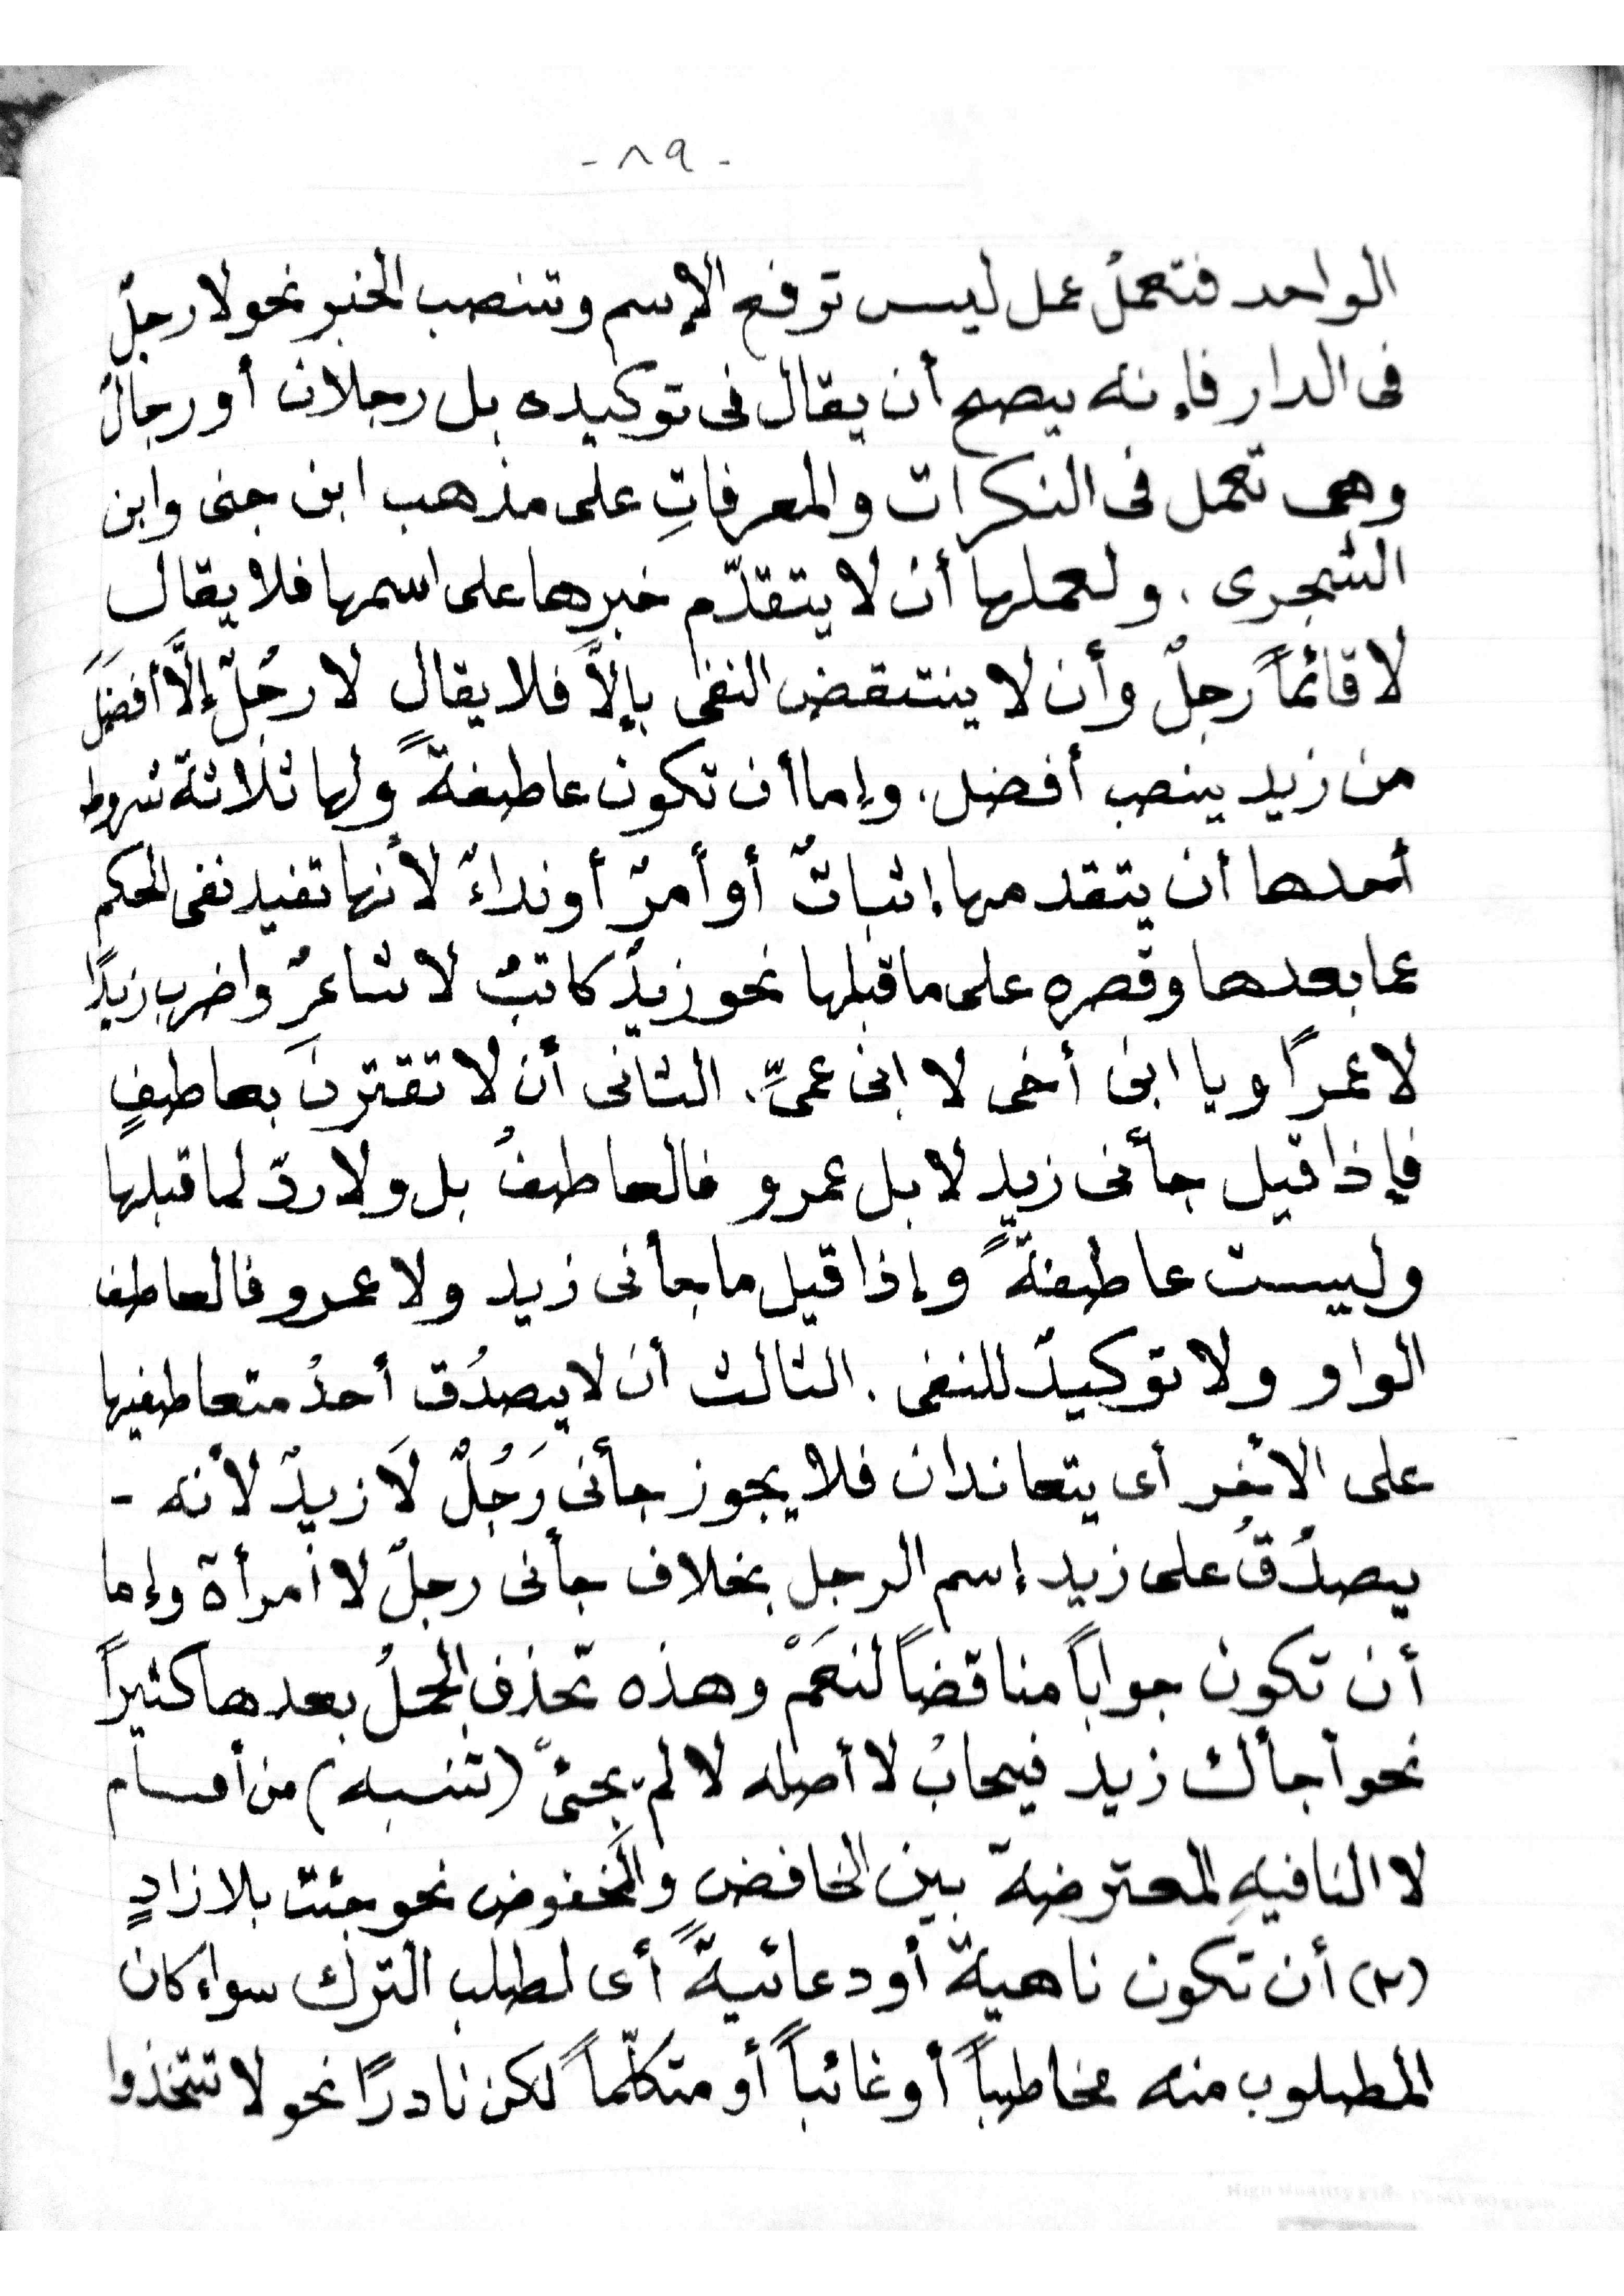 - ٨٩ -
الواحد فتعملُ عمل ليس ترفع الإسم وتنصب الخبر نحو لا رجلٌ
فى الدار فإنه يصح أن يقال فى توكيده بل رجلان أو رجالٌ
وهى تعمل فى النكرات والمعرفاتِ على مذهب ابن جنى وابن
الشجرى . ولعملها أن لا يتقدّم خبرها على اسمها فلا يقال
لا قائماً رجلٌ وأن لا ينتقض النفى بإلاَّ فلا يقال لا رجُلٌ إلَّا أفضلَ
من زيد ينصب أفضل . وإما أن تكون عاطفةً ولها ثلاثة شروط
أحدها أن يتقدمها إثباتٌ أو أمرٌ أو نداءٌ لأنها تفيد نفى الحكم
عما بعدها وقصره على ما قبلها نحو زيدٌ كاتبٌ لا شاعرٌ واضرب زيدًا
لا عمرًا ويا ابنَ أخى لا ابنَ عمىِّ . الثانى أن لا تقترنَ بعاطفٍ
فإذا قيل جأنى زيد لا بل عمرو فالعاطفُ بل ولا ردّ لما قبلها
وليست عاطفةً وإذا قيل ما جأنى زيد ولا عمرو فالعاطف
الواو ولا توكيدٌ للنفى . الثالث أن لا يصدُق أحدُ متعاطفيها
على الأخر أى يتعاندان فلا يجوز جأنى رَجُلٌ لَا زيدٌ لأنه -
يصدُقُ على زيد إسم الرجل بخلاف جأنى رجلٌ لا امرأة وإما
أن تكون جواباً مناقضاً لنعَمْ وهذه تحذف الجملُ بعدها كثيراً
نحو أجأك زيد فيجابُ لا أصله لا لم يجئ (تنبيه) من أقسام
لا النافيهِ المعترضة بين الخافض والمخفوض نحو جئت بلا زادٍ
(٢) أن تكون ناهيةً أو دعائيةً أى لطلب الترك سواء كان
المطلوب منه مخاطباً أو غائباً أو متكلّماً لكن نادرًا نحو لا تتخذوا